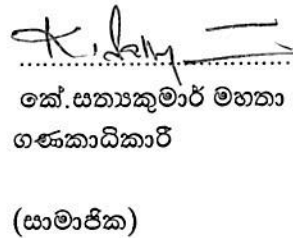 කේ.සත්‍යකුමාර් මහතා
ගණකාධිකාරී
(සාමාජික)